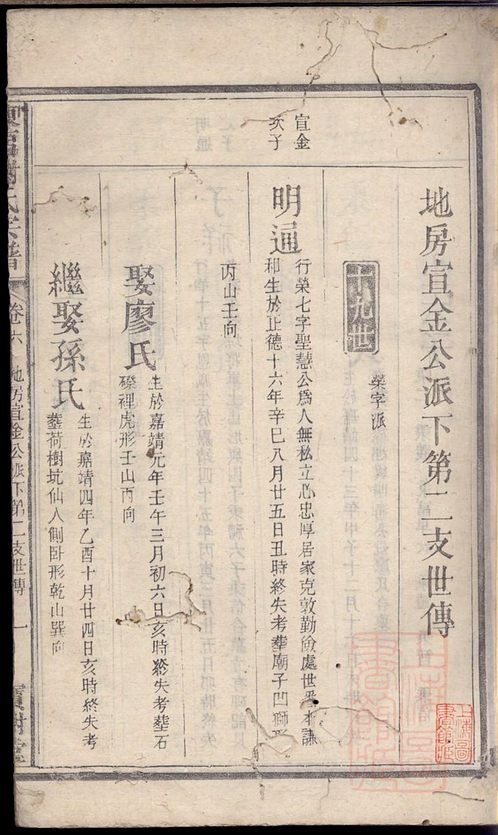 地房宣金公派下第二支世傳
十九世
榮字派
宣金
次子
明通
行榮七字聖慧公爲人無私立心忠厚居家克敦勤儉處世
謙和生於正德十六年辛巳八月廿五日丑時終失考葬廟子凹獅形
丙山壬向
娶廖氏
生於嘉靖元年壬午三月初六日亥時終失考葬石
磜裡虎形壬山丙向
繼娶孫氏
生於嘉靖四年乙酉十月廿四日亥時終失考
葬荷樹坑仙人側卧形乾山巽向
氏宗譜
卷六
地房宣金公派下第二支世傳
一
寶樹堂
上海圖
書館藏